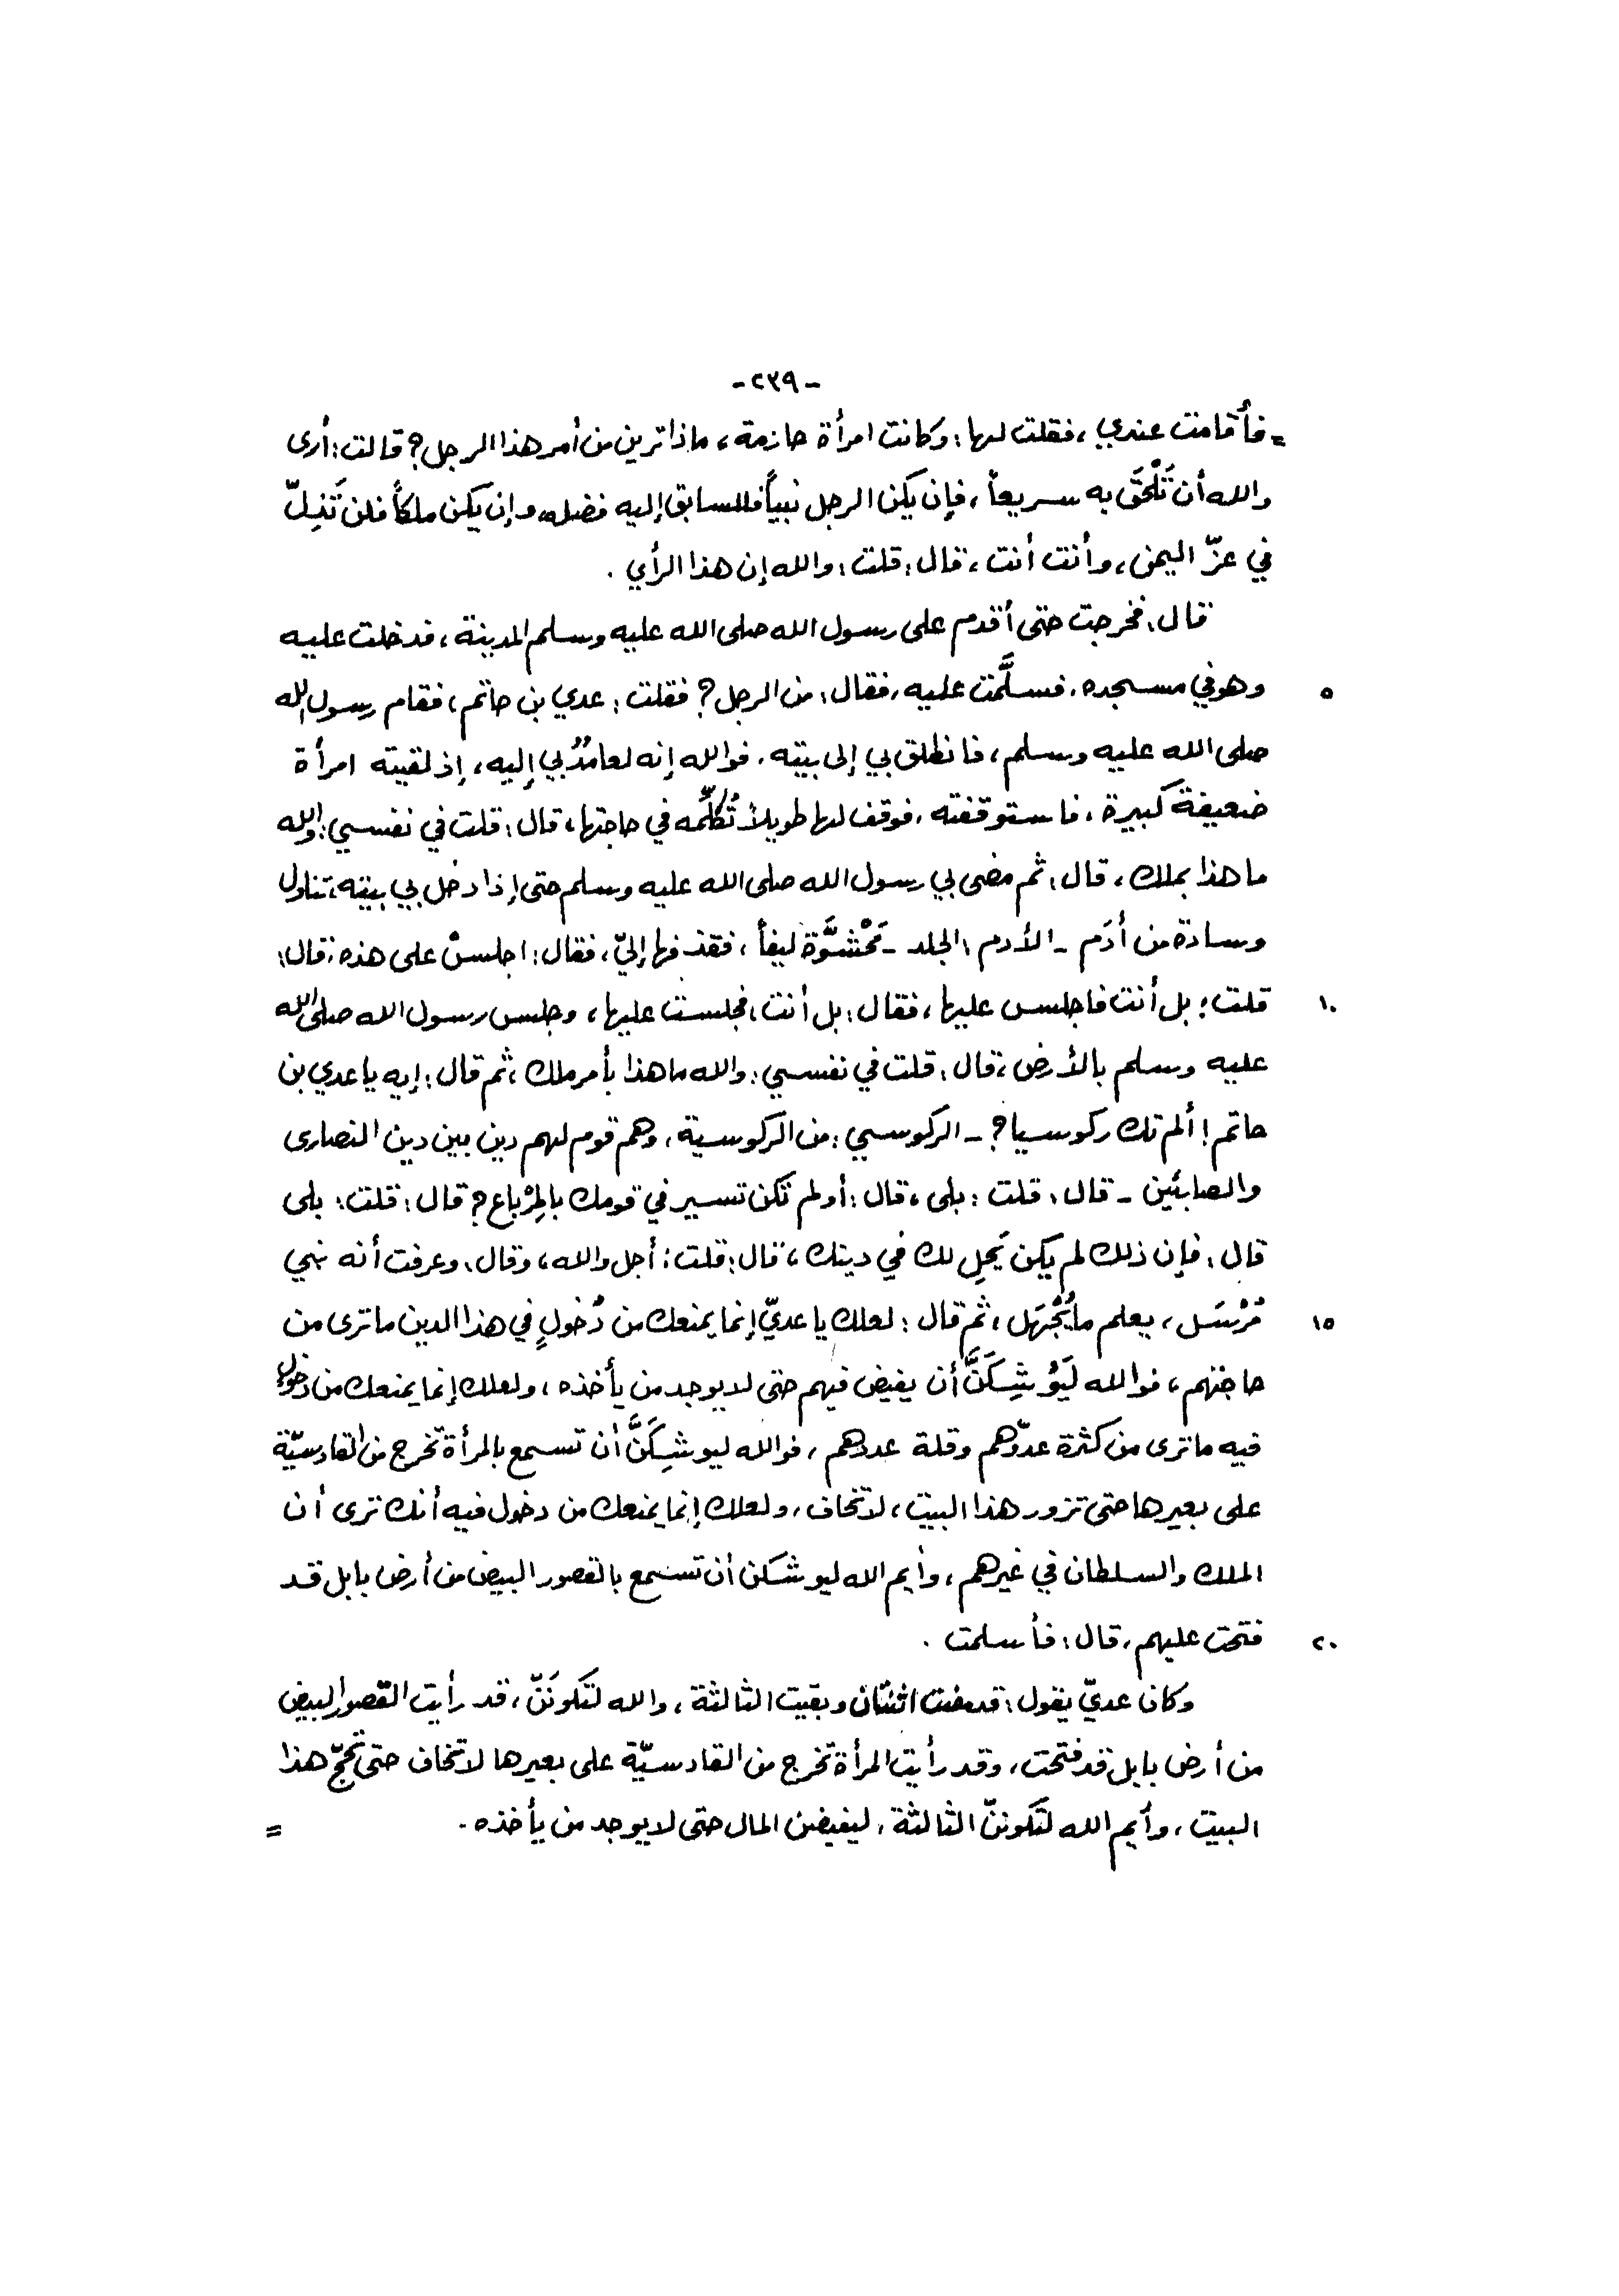 -٢٣٩-
= فأقامت عندي، فقلت لها: وكانت امرأة حازمة، ماذا ترين من أمر هذا الرجل؟ قالت: أرى
والله أن تَلْحَقَ به سريعاً، فإن يكن الرجل نبياً فللسابق إليه فضله، وإن يكن ملكاً فلن تَذِلّ
في عزّ اليمن، وأنت أنت، قال: قلت: والله إن هذا الرأي .
قال: فخرجت حتى أقدم على رسول الله صلى الله عليه وسلم المدينة، فدخلت عليه
٥ وهو في مسجده، فسلَّمت عليه، فقال: من الرجل؟ فقلت: عدي بن حاتم، فقام رسول الله
صلى الله عليه وسلم، فانطلق بي إلى بيته، فوالله إنه لعامُدُ بي إليه، إذ لقيته امرأة
ضعيفة كبيرة، فاستوقفته، فوقف لها طويلاً تُكلِّمه في حاجتها، قال: قلت في نفسي: والله
ما هذا بملك، قال: ثم مضى بي رسول الله صلى الله عليه وسلم حتى إذا دخل بي بيته، تناول
وسادة من أدَم - الأدم: الجلد - مَحْشوَّة ليفاً، فقذفها إليّ، فقال: اجلسْ على هذه، قال:
١٠ قلت: بل أنت فاجلس عليها، فقال: بل أنت، فجلست عليها، وجلس رسول الله صلى الله
عليه وسلم بالأرض، قال: قلت في نفسي: والله ما هذا بأمر ملك، ثم قال: إيه يا عدي بن
حاتم! ألم تك ركوسيا؟ - الركوسي: من الركوسية، وهم قوم لهم دين بين دين النصارى
والصابئين - قال: قلت: بلى، قال: أولم تكن تسير في قومك بالمِرْباع؟ قال: قلت: بلى
قال: فإن ذلك لم يكن يَحِل لك في دينك، قال: قلت: أجل والله، وقال: وعرفت أنه نبي
١٥ مُرْسَل، يعلم ما يُجْهَل، ثم قال: لعلك يا عديّ إنما يمنعك من دُخولٍ في هذا الدين ما ترى من
حاجتهم، فوالله لَيُوْشِكَنَّ أن يفيض فيهم حتى لا يوجد من يأخذه، ولعلك إنما يمنعك من دخولٍ
فيه ما ترى من كثرة عدّوهم وقلة عددهم، فوالله ليوشِكَنَّ أن تسمع بالمرأة تخرج من القادسيّة
على بعيرها حتى تزور هذا البيت، لا تخاف، ولعلك إنما يمنعك من دخول فيه أنك ترى أن
الملك والسلطان في غيرهم، وأيم الله ليوشكن أن تسمع بالقصور البيض من أرض بابل قد
٢٠ فتحت عليهم، قال: فأسلمت .
وكان عديّ يقول: قد مضت اثنتان وبقيت الثالثة، والله لتَكونَنّ، قد رأيت القصور البيض
من أرض بابل قد فتحت، وقد رأيت المرأة تخرج من القادسيّة على بعيرها لا تخاف حتى تحجّ هذا
البيت، وأيم الله لتَكوننّ الثالثة، ليفيضن المال حتى لا يوجد من يأخذه. =